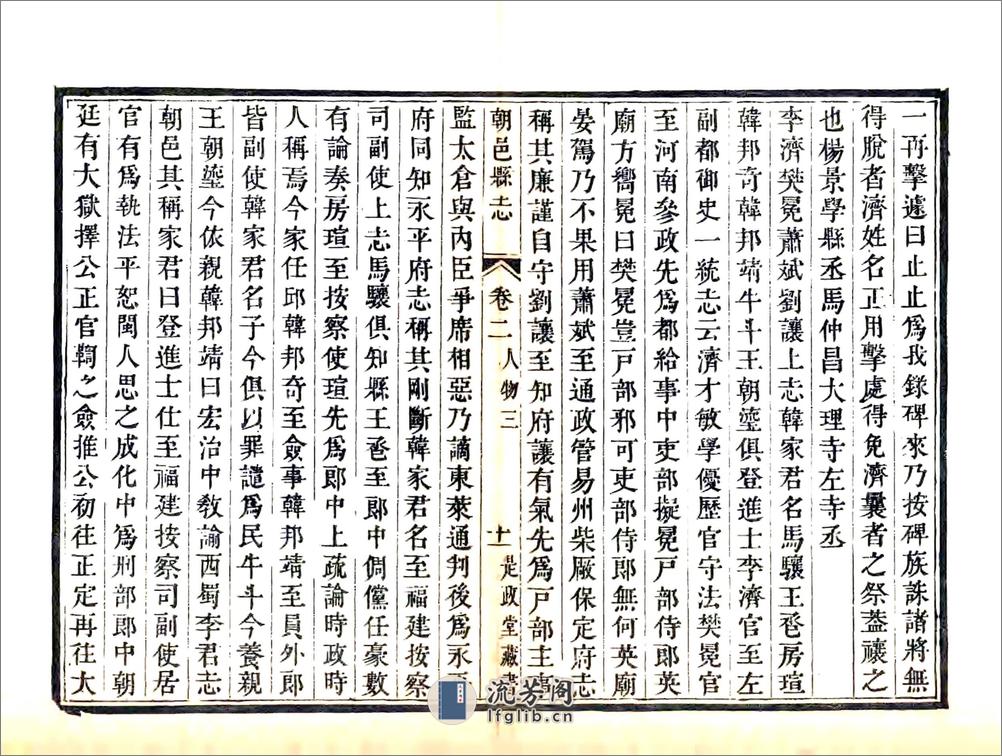 一再擊遽曰止止爲我錄碑來乃按碑族誅諸將無
得脫者濟姓名正用擊處得免濟曩者之祭葢禳之
也楊景學縣丞馬仲昌大理寺左寺丞
李濟樊冕蕭斌劉讓上志韓家君名馬驤王吞房瑄
韓邦竒韓邦靖牛斗王朝鍌俱登進士李濟官至左
副都御史一統志云濟才敏學優歷官守法樊冕官
至河南參政先爲都給事中吏部擬冕戸部侍郎英
廟方嚮冕曰樊冕豈戸部邪可吏部侍郎無何英廟
晏駕乃不果用蕭斌至通政管易州柴厰保定府志
稱其廉謹自守劉讓至知府讓有氣先爲戸部主事
朝邑縣志 卷二 人物三 十一 是政堂藏書
監太倉與內臣爭席相惡乃謫東萊通判後爲永平
府同知永平府志稱其剛斷韓家君名至福建按察
司副使上志馬驤俱知縣王吞至郎中倜儻任豪數
有論奏房瑄至按察使瑄先爲郎中上疏論時政時
人稱焉今家任邱韓邦奇至僉事韓邦靖至員外郎
皆副使韓家君名子今俱以罪譴爲民牛斗今養親
王朝鍌今依親韓邦靖曰宏治中敎諭西蜀李君志
朝邑其稱家君曰登進士仕至福建按察司副使居
官有爲執法平恕閩人思之成化中爲刑部郎中朝
廷有大獄擇公正官鞫之僉推公初往正定再往大
流芳阁
lfglib.cn